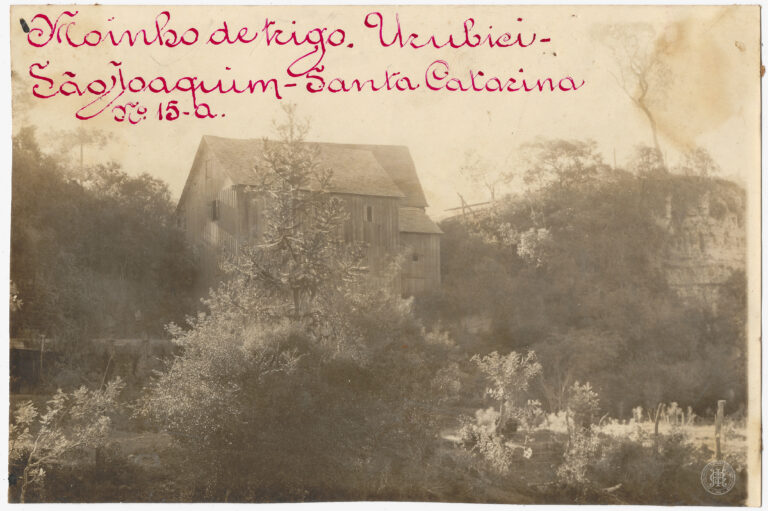 Moinho de trigo. Urubici-
São Joaquim-Santa Catarina
Nº 15-a.